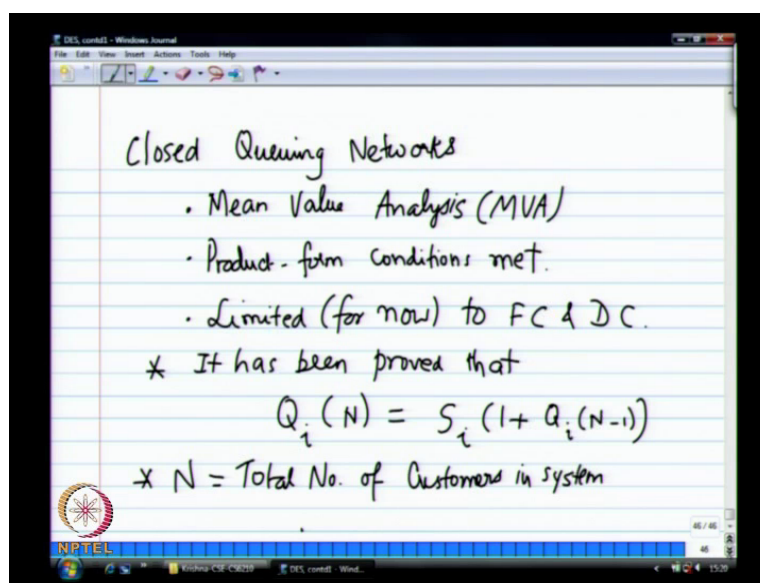 DES, contd1 - Windows Journal
File Edit View Insert Actions Tools Help
Closed Queuing Networks
. Mean Value Analysis (MVA)
. Product-form conditions met.
. Limited (for now) to FC & DC.
* It has been proved that
Q_i (N) = S_i (1 + Q_i (N-1))
* N = Total No. of Customers in system
46 / 46
46
NPTEL
Krishna-CSE-CS6210
DES, contd1 - Wind...
15:20